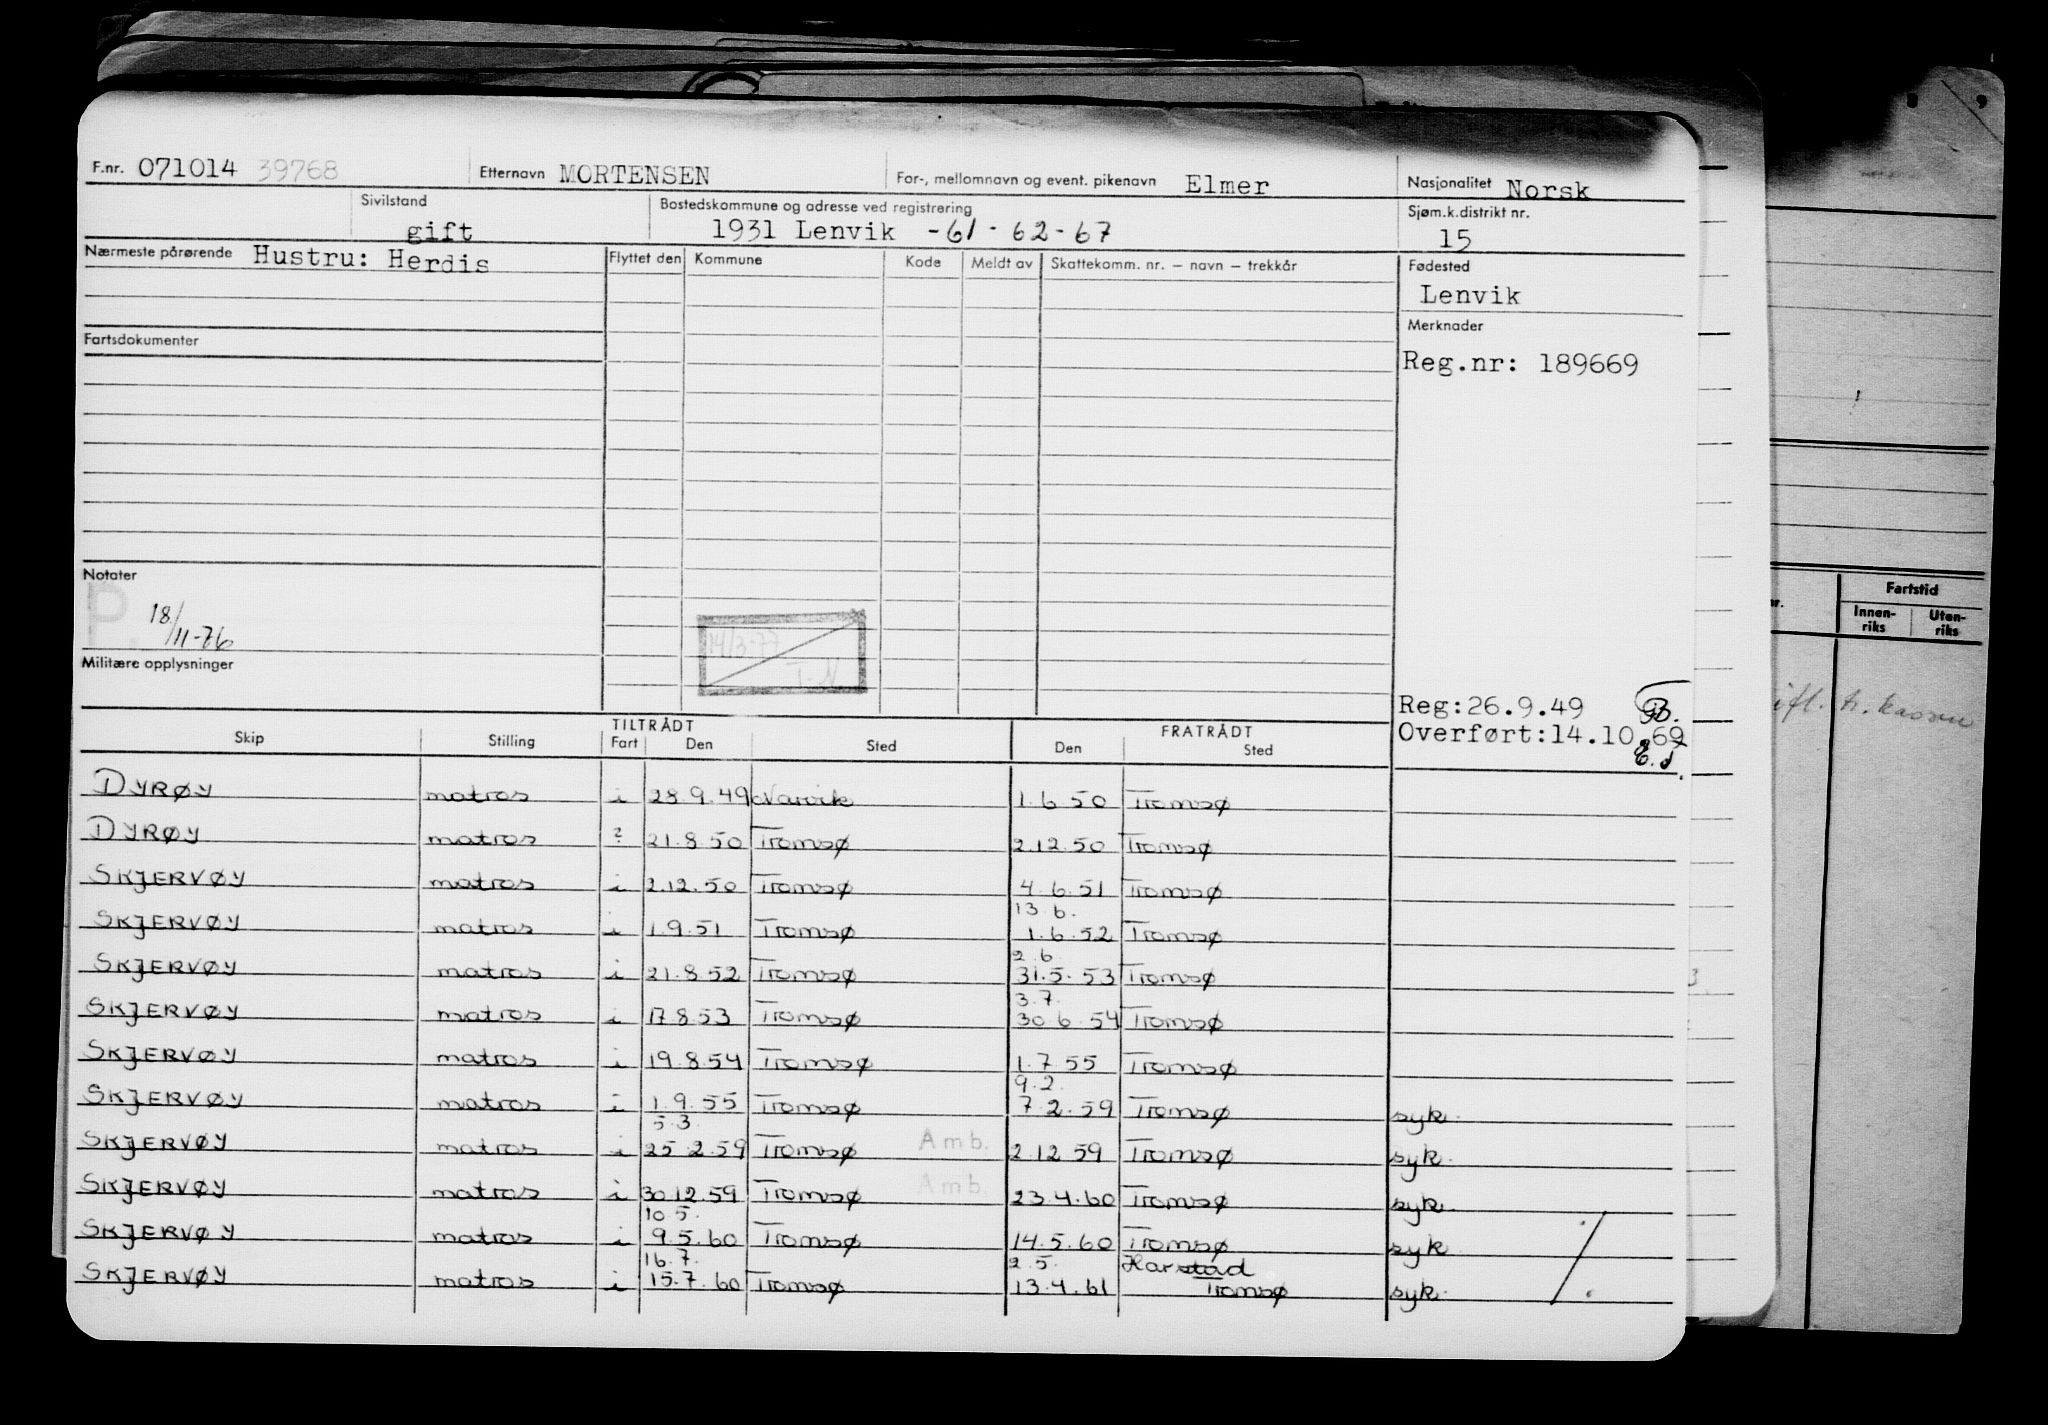 F.nr. 071014 39768 Etternavn MORTENSEN For-, mellomnavn og event. pikenavn Elmer Nasjonalitet Norsk
Sivilstand gift Bostedskommune og adresse ved registrering 1931 Lenvik -61-62-67 Sjøm.k.distrikt nr. 15
Nærmeste pårørende Hustru: Herdis Flyttet den Kommune Kode Meldt av Skattekomm. nr. – navn – trekkår Fødested
Lenvik
Fartsdokumenter Merknader
Reg.nr: 189669
Notater
P. 18/11-76
14/3-77
T-N
Militære opplysninger
Reg:26.9.49
Overført:14.10.69
Skip Stilling TILTRÅDT Fart Den Sted FRATRÅDT Den Sted
DYRØY matros i 28.9.49 Narvik 1.6.50 Tromsø
DYRØY matros ? 21.8.50 Tromsø 2.12.50 Tromsø
SKJERVØY matros i 2.12.50 Tromsø 4.6.51 Tromsø
13.6.
SKJERVØY matros i 1.9.51 Tromsø 1.6.52 Tromsø
2.6.
SKJERVØY matros i 21.8.52 Tromsø 31.5.53 Tromsø
3.7.
SKJERVØY matros i 17.8.53 Tromsø 30.6.54 Tromsø
SKJERVØY matros i 19.8.54 Tromsø 1.7.55 Tromsø
9.2.
SKJERVØY matros i 1.9.55 Tromsø 7.2.59 Tromsø syk.
5.3.
SKJERVØY matros i 25.2.59 Tromsø Amb. 2.12.59 Tromsø syk.
SKJERVØY matros i 30.12.59 Tromsø Amb. 23.4.60 Tromsø syk.
10.5.
SKJERVØY matros i 9.5.60 Tromsø 14.5.60 Tromsø syk.
16.7. 2.5. Harstad
SKJERVØY matros i 15.7.60 Tromsø 13.4.61 Tromsø syk.
Fartstid
Innen-riks Uten-riks